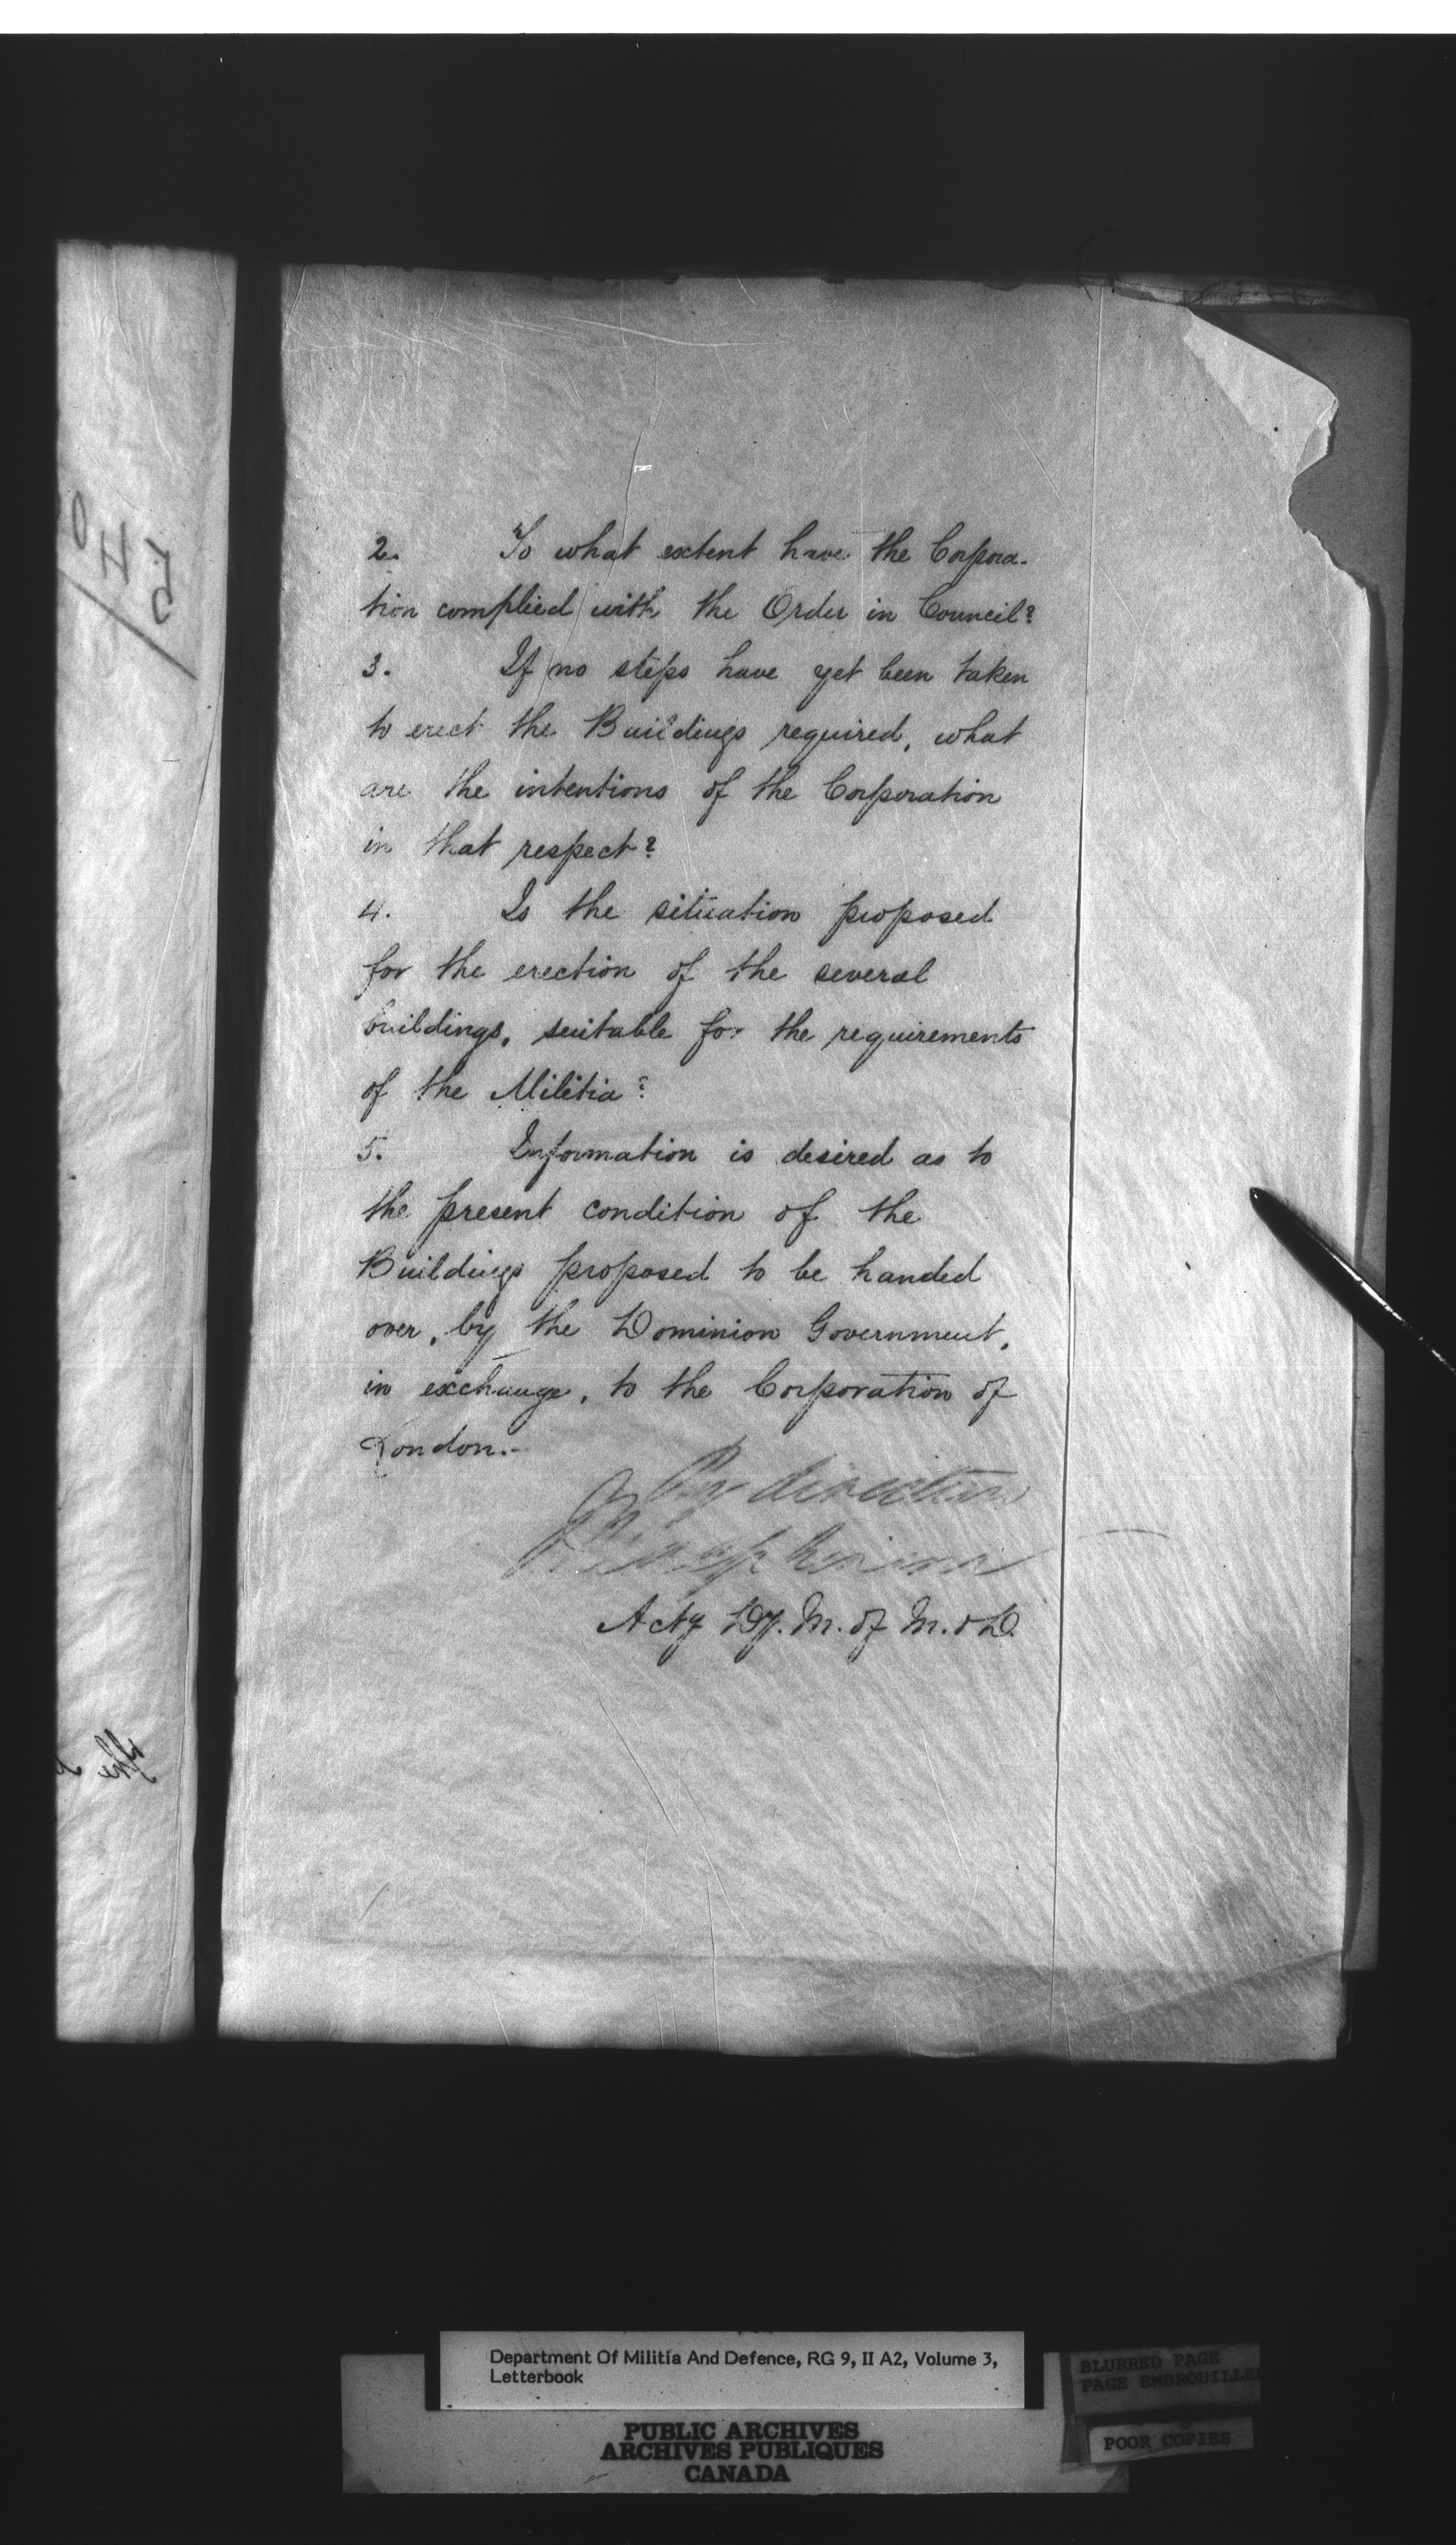 2. To what extent have the Corpora-
tion complied with the Order in Council?
3. If no steps have yet been taken
to erect the Buildings required, what
are the intentions of the Corporation
in that respect?
4. Is the situation proposed
for the erection of the several
buildings, suitable for the requirements
of the Militia?
5. Information is desired as to
the present condition of the
Buildings proposed to be handed
over, by the Dominion Government,
in exchange, to the Corporation of
London.-
By direction
Actg Dy. M. of M. & D.
Department Of Militia And Defence, RG 9, II A2, Volume 3,
Letterbook
PUBLIC ARCHIVES
ARCHIVES PUBLIQUES
CANADA
BLURRED PAGE
PAGE EMBROUILLE
POOR COPIES